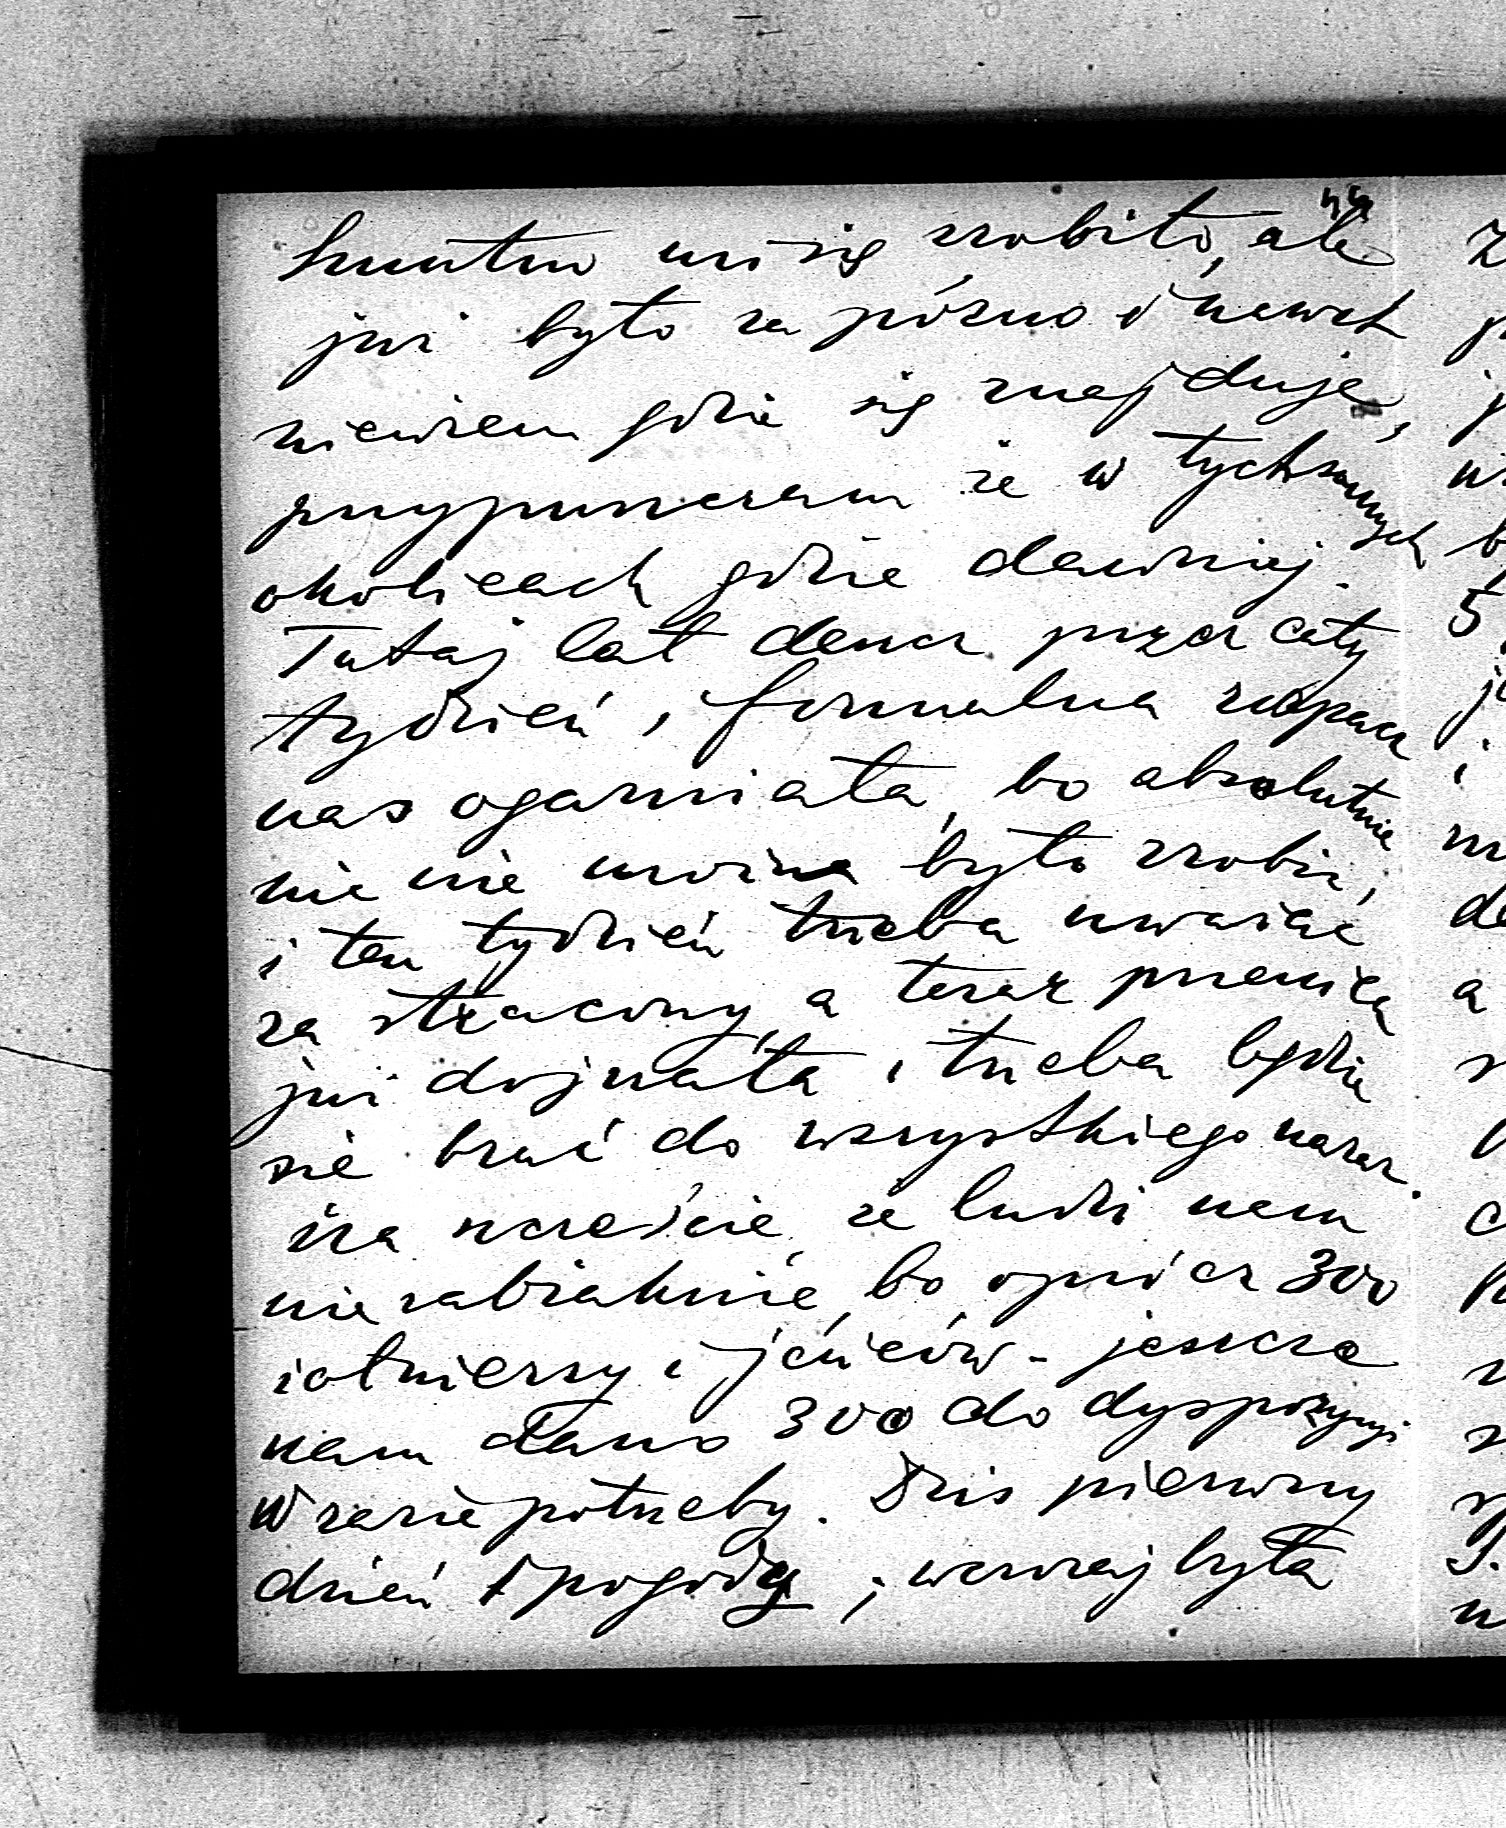 smutno mi się zrobiło, ale
już było za późno i nawet
niewiem gdzie się znajduje,
przypuszczam że w tychsamych
okolicach gdzie dawniej.
Tutaj lał deszcz przez cały
tydzień, formalna rozpacz
nas ogarniała, bo absolutnie
nic nie można było zrobić,
i ten tydzień trzeba uważać
za stracony, a teraz pszenica
już dojrzała i trzeba będzie
się brać do wszystkiego naraz.
Na szczeście, że ludzi nam
nie zabraknie, bo oprócz 300
żołnierzy i jeńców - jeszcze
nam dano 300 do dyspozycyi
W razie potrzeby. Dziś pierwszy
dzień pogody; wczoraj była